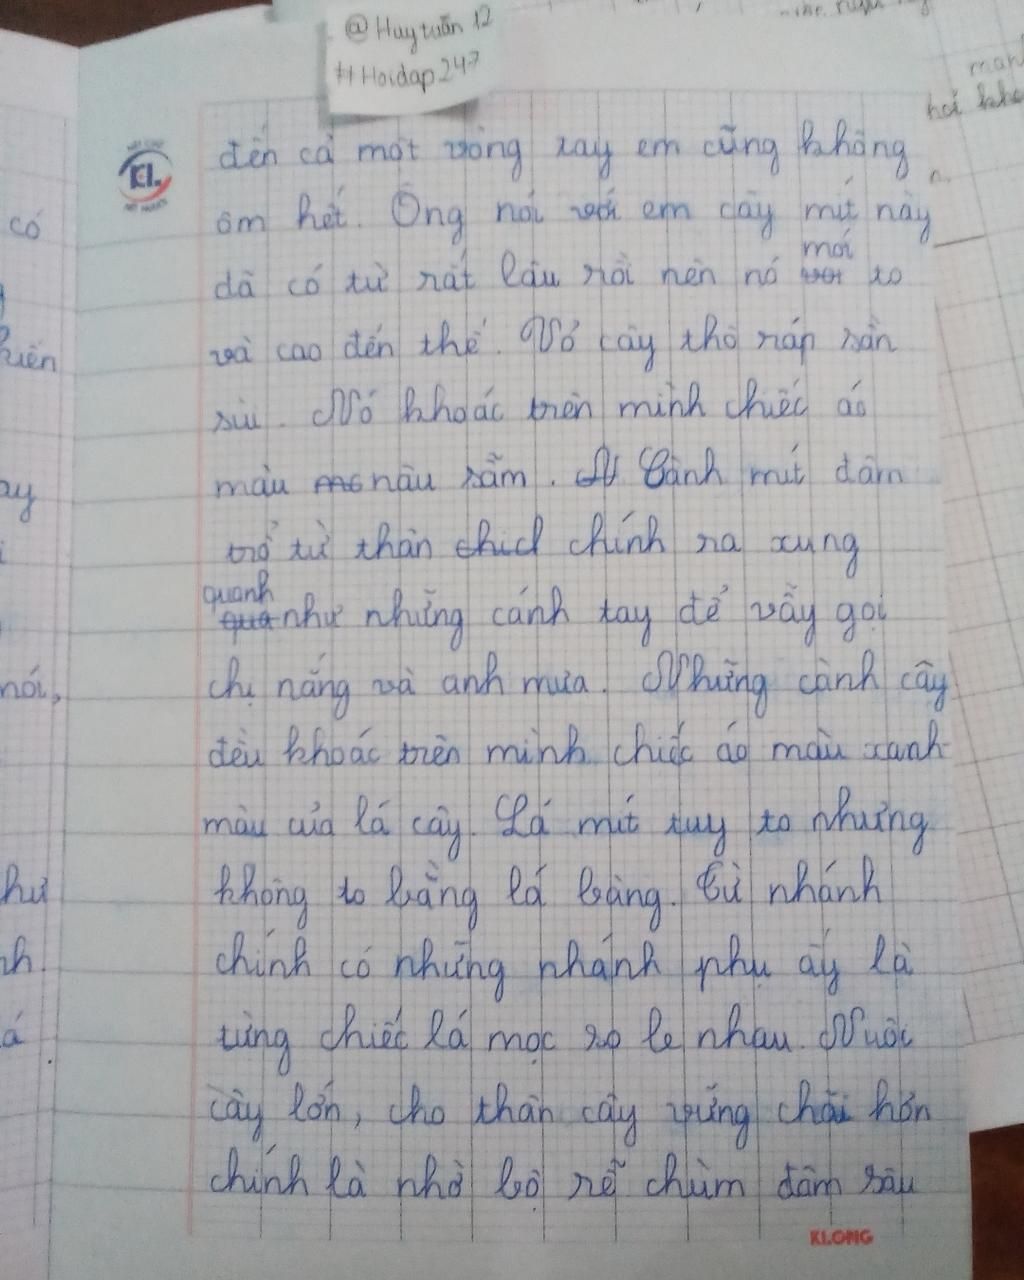 @Huytuấn12
#Hoidap247
đến cả một vòng tay em cũng không
ôm hết. Ông nói với em cây mít này
đã có từ rất lâu rồi nên nó mới to
và cao đến thế. Vỏ cây thô ráp sần
sùi. Nó khoác trên mình chiếc áo
màu nâu sẫm. Cành mít đâm
trổ từ thân chính ra xung
quanh như những cánh tay để vẫy gọi
chị nắng và anh mưa. Những cành cây
đều khoác trên mình chiếc áo màu xanh
màu của lá cây. Lá mít tuy to nhưng
không to bằng lá bàng. Từ nhánh
chính có những nhánh phụ ấy là
từng chiếc lá mọc so le nhau. Nuôi
cây lớn, cho thân cây vững chãi hơn
chính là nhờ bộ rễ chùm đâm sâu
KLONG
có
ay
nói,
á